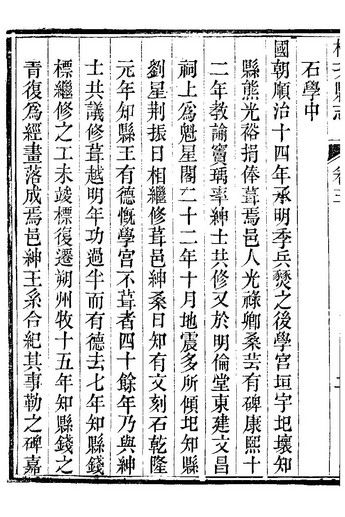 石學中
國朝順治十四年承明季兵燹之後學宮垣宇圮壞知
縣熊光裕捐俸葺焉邑人光祿卿桑芸有碑康熙十
二年教諭竇瑀率紳士共修又於明倫堂東建文昌
祠上爲魁星閣二十二年十月地震多所傾圮知縣
劉星荆振日相繼修葺邑紳桑日知有文刻石乾隆
元年知縣王有德慨學宮不葺者四十餘年乃與紳
士共議修葺越明年功過半而有德去七年知縣錢
標繼修之工未竣標復遷朔州牧十五年知縣錢之
青復爲經畫落成焉邑紳王系合紀其事勒之碑嘉